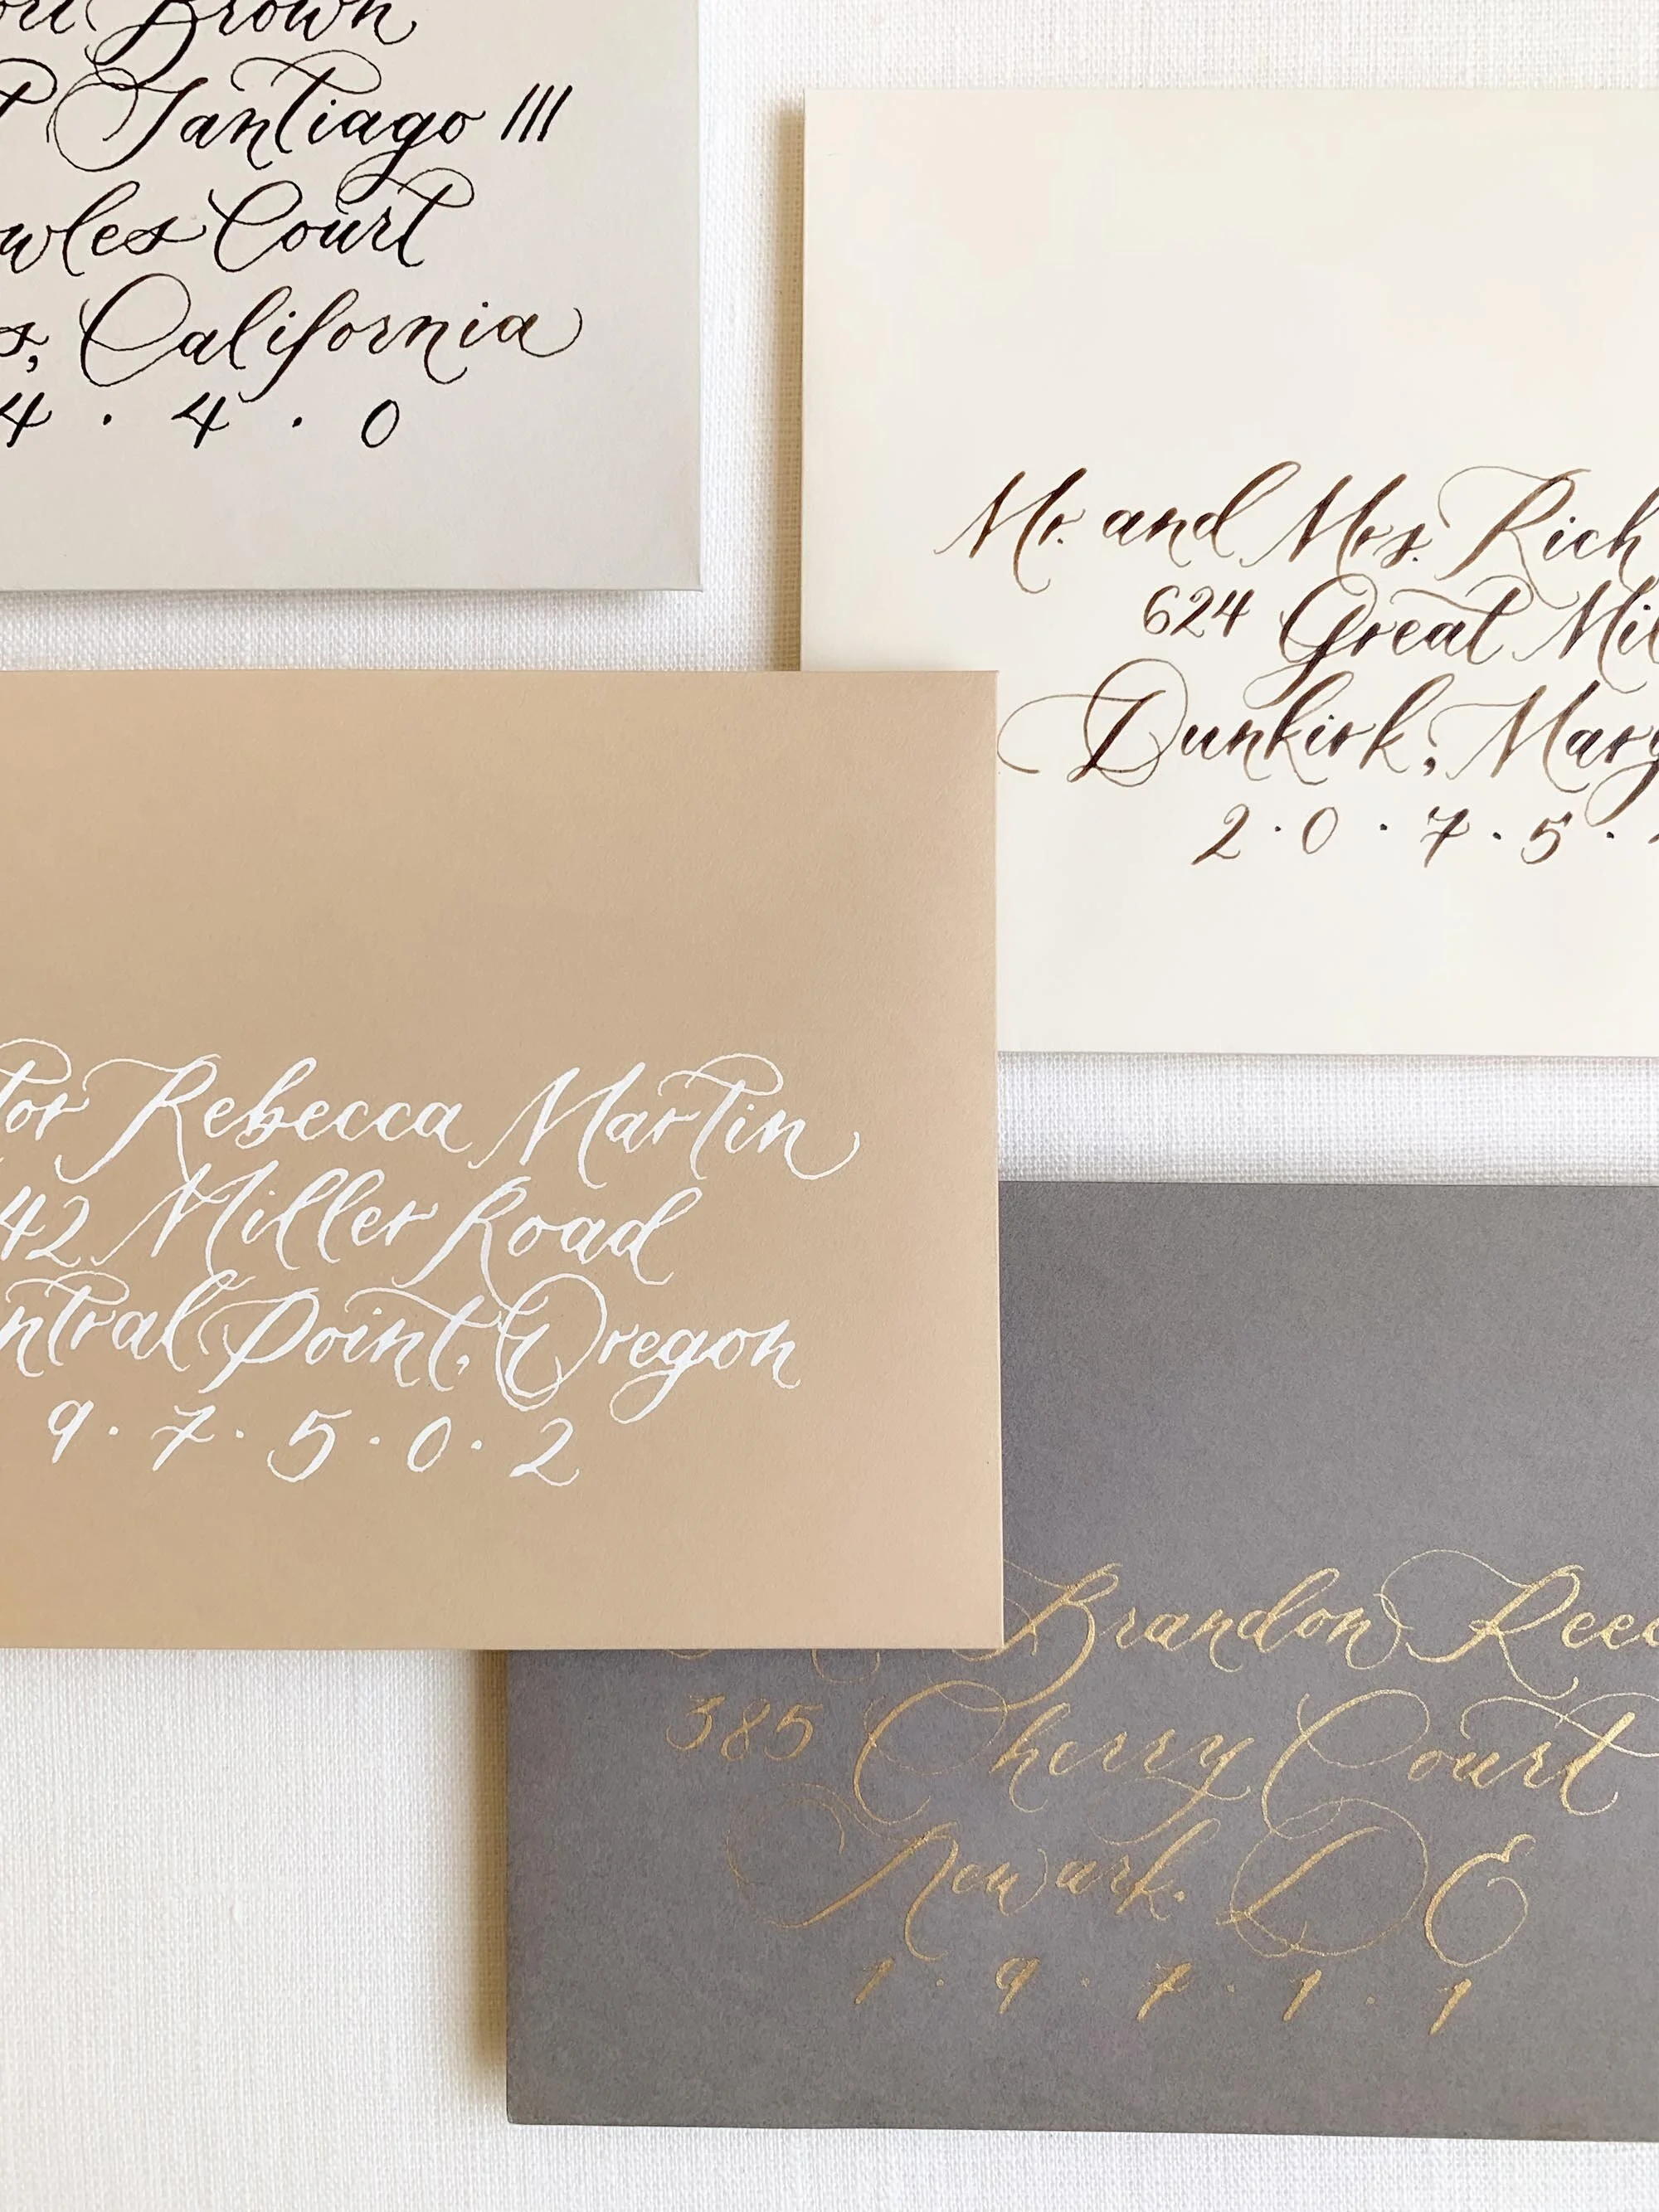 Brown
Santiago III
Court
California
4 · 4 · 0
Mr. and Mrs. Rich
624 Great Mil
Dunkirk, Mary
2 · 0 · 7 · 5 ·
tor Rebecca Martin
42 Miller Road
ntral Point, Oregon
9 · 7 · 5 · 0 · 2
Brandon Reed
385 Cherry Court
Newark, DE
1 · 9 · 7 · 1 · 1